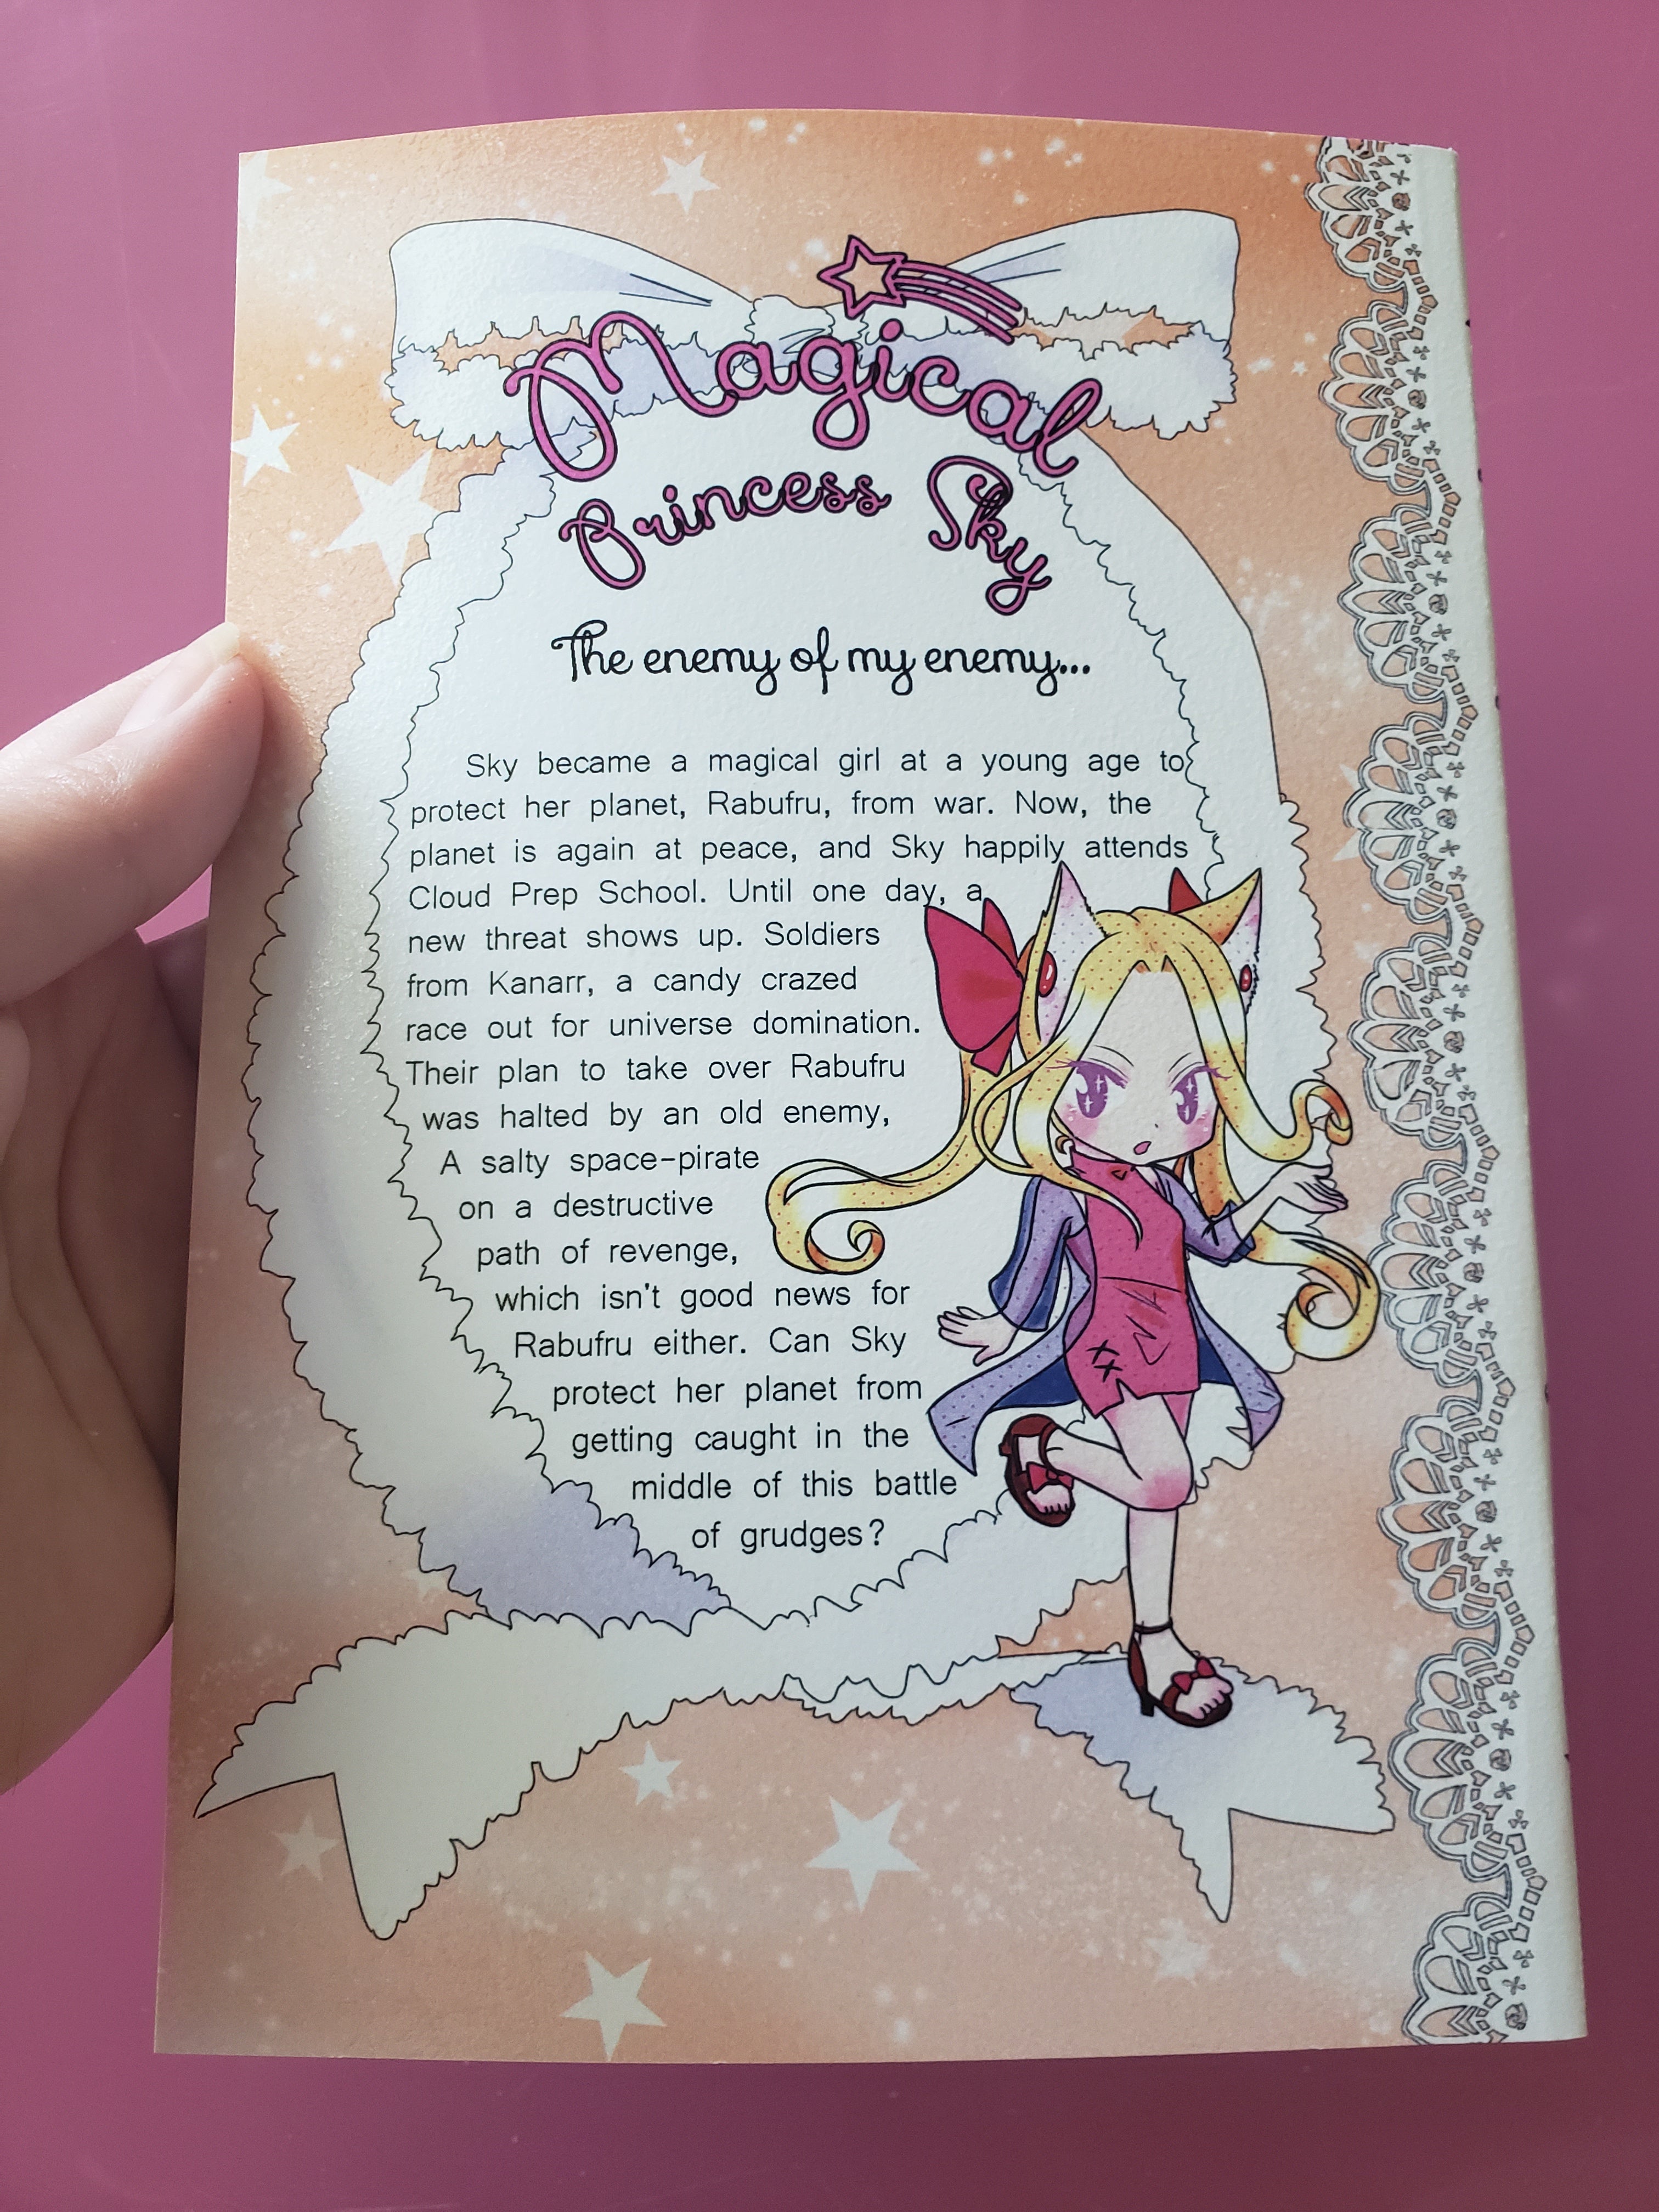 Magical
Princess Sky
The enemy of my enemy...
Sky became a magical girl at a young age to
protect her planet, Rabufru, from war. Now, the
planet is again at peace, and Sky happily attends
Cloud Prep School. Until one day, a
new threat shows up. Soldiers
from Kanarr, a candy crazed
race out for universe domination.
Their plan to take over Rabufru
was halted by an old enemy,
A salty space-pirate
on a destructive
path of revenge,
which isn't good news for
Rabufru either. Can Sky
protect her planet from
getting caught in the
middle of this battle
of grudges?